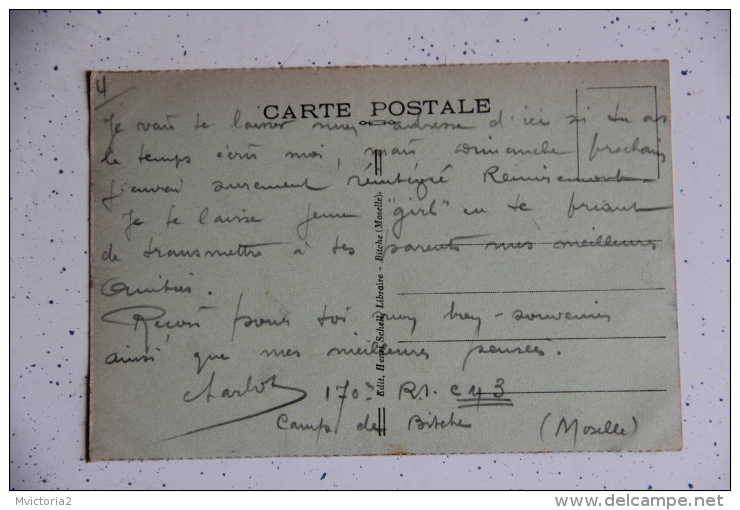 4
CARTE POSTALE
Je vais te laisser mon adresse d'ici si tu as
le temps écris moi, mais dimanche prochain
j'aurai surement réintégré Remiremont
Je te laisse jeune "girl" en te priant
de transmettre à tes parents mes meilleures
Amitiés.
Reçois pour toi mon bon souvenir
ainsi que mes meilleures pensées.
Charlot 170e R.I. C M 3
Camp de Bitche (Moselle)
Edit. Henri Schelly Libraire - Bitche (Moselle).
Mvictoria2
http://www.delcampe.net